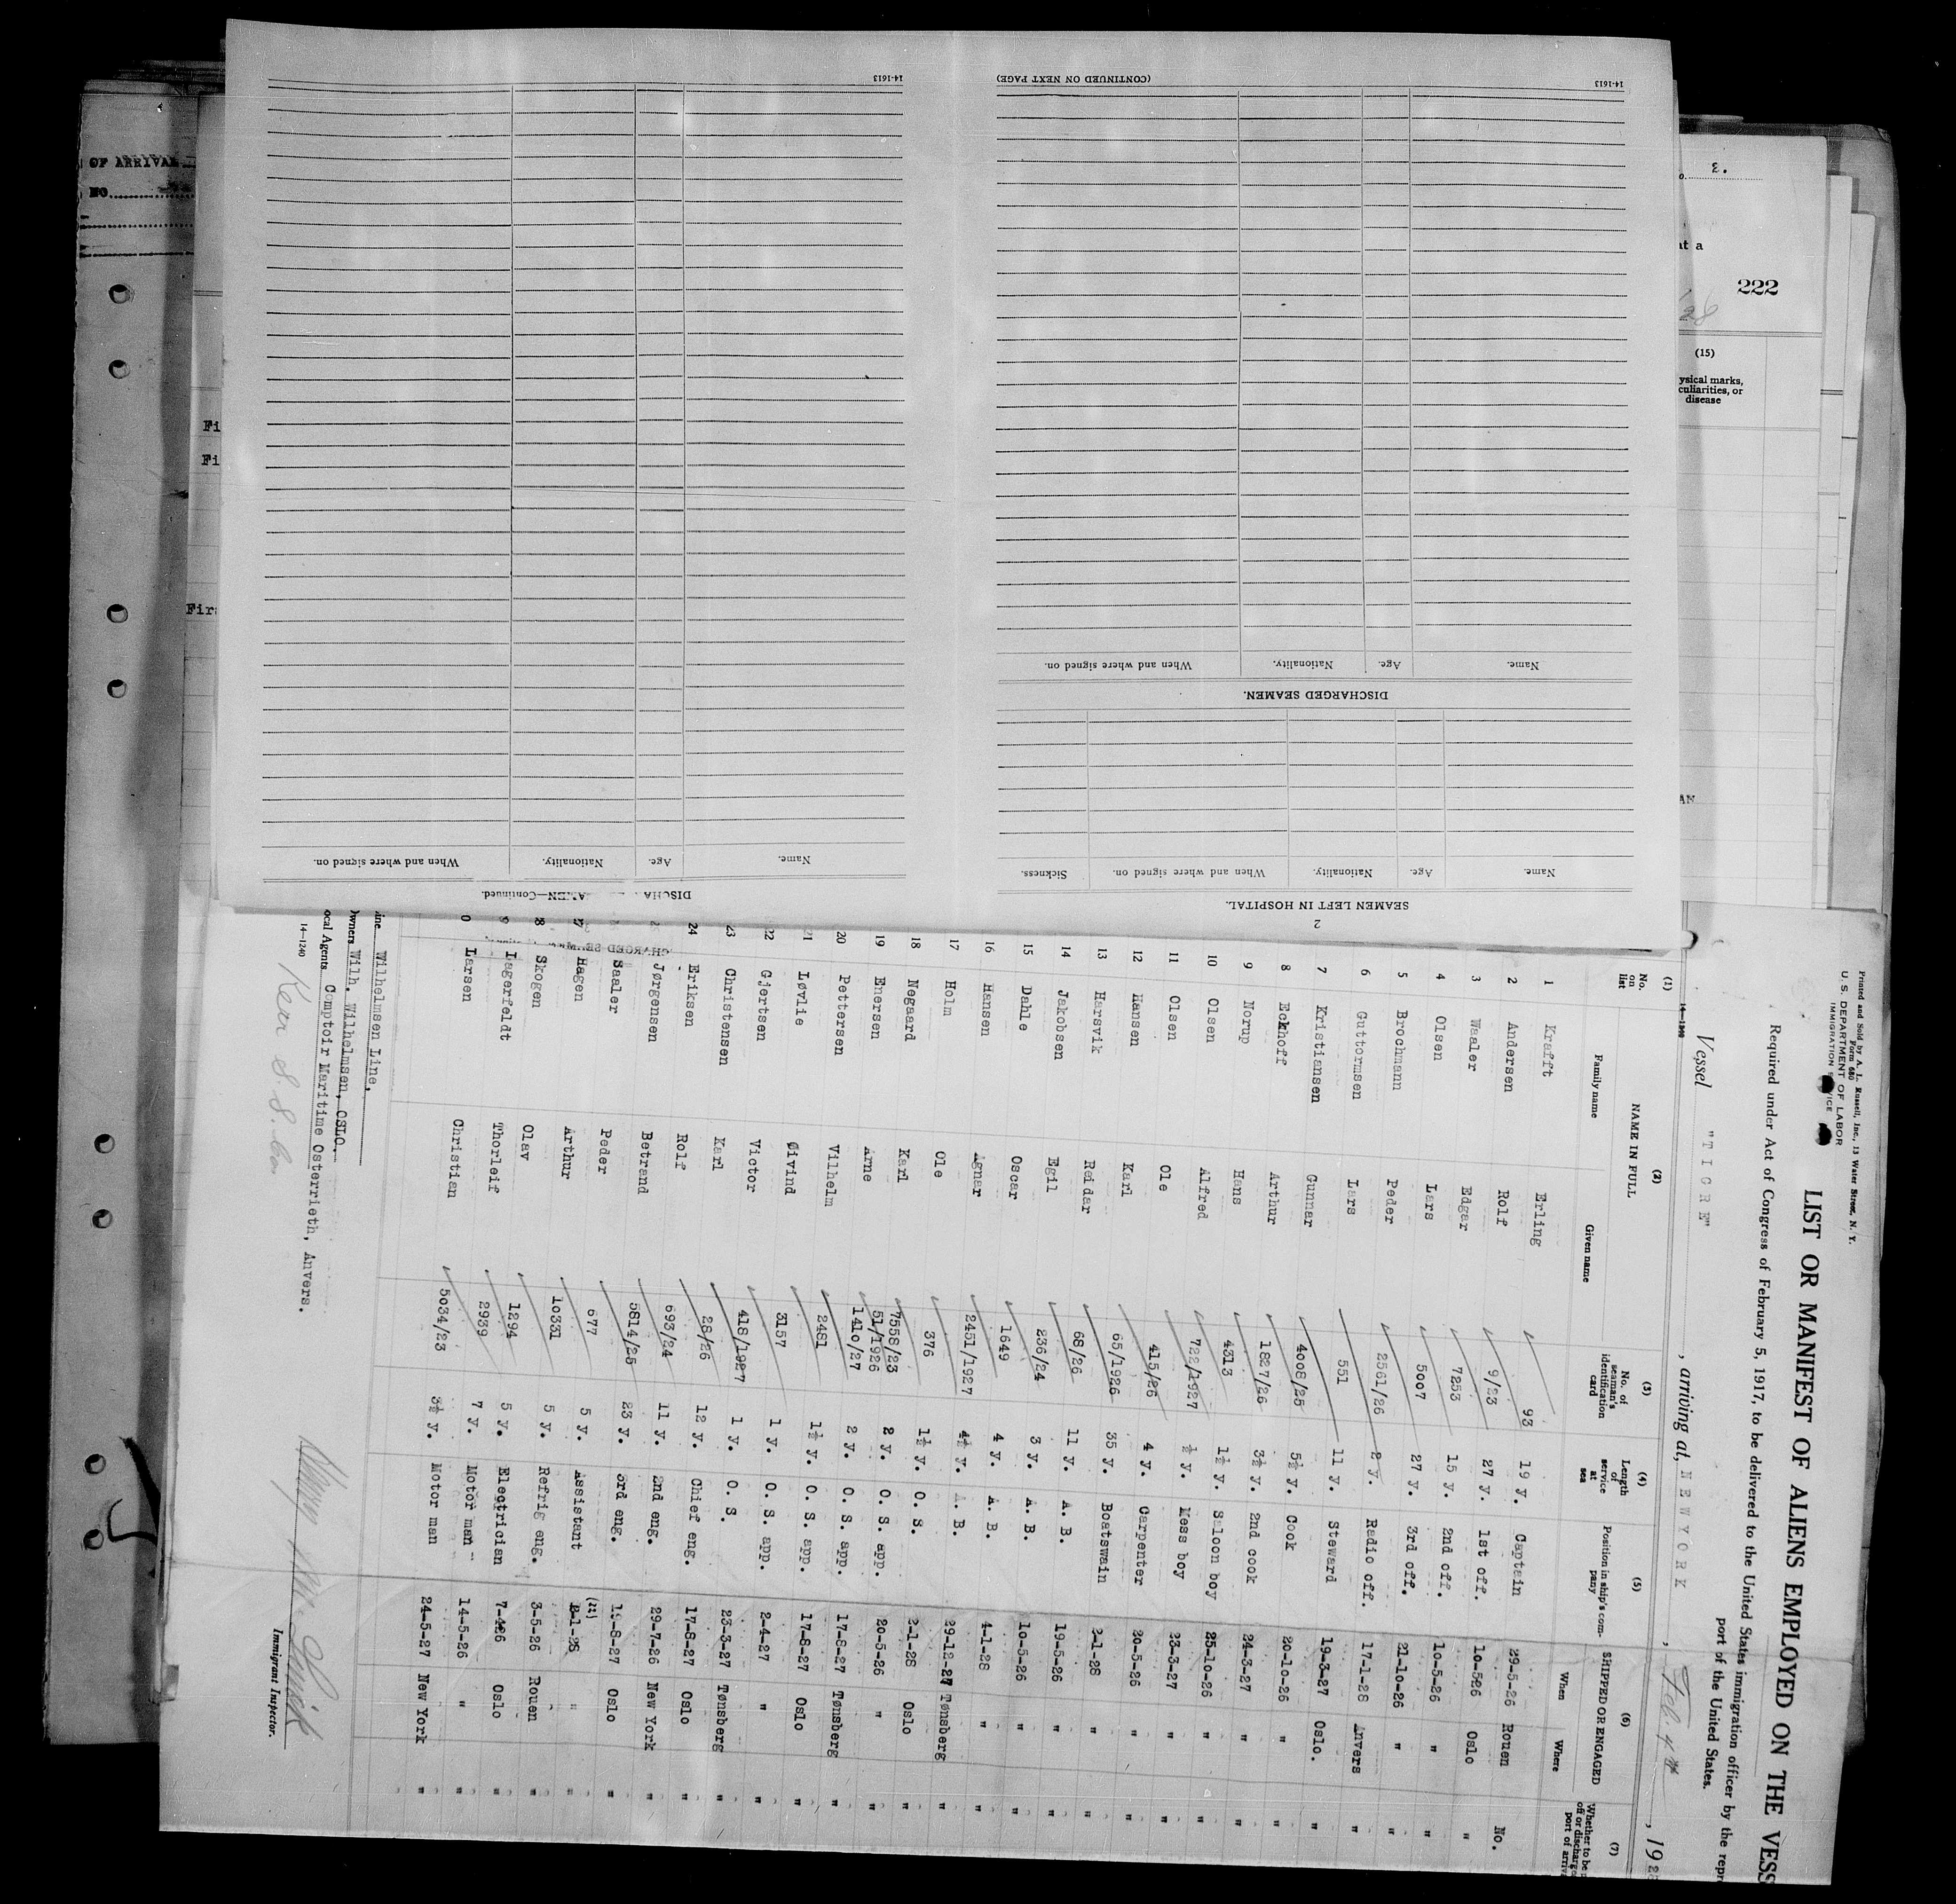 OF ARRIVAL
NO.
Fi
Fi
Fir
3.
at a
222
(15)
ysical marks,
culiarities, or
disease
2
SEAMEN LEFT IN HOSPITAL.
Name. Age. Nationality. When and where signed on. Sickness.
DISCHARGED SEAMEN.
Name. Age. Nationality. When and where signed on.
14-1613 (CONTINUED ON NEXT PAGE)
DISCHA AMEN—Continued.
Name. Age. Nationality. When and where signed on.
14-1613
Printed and Sold by A. L. Russell, Inc., 13 Water Street, N. Y.
Form 680
U. S. DEPARTMENT OF LABOR
IMMIGRATION SERVICE
LIST OR MANIFEST OF ALIENS EMPLOYED ON THE VESS
Required under Act of Congress of February 5, 1917, to be delivered to the United States immigration officer by the repr
port of the United States.
Vessel "TIGRE", arriving at, NEWYORK, Feb. 4th, 192
(1) (2) (3) (4) (5) (6) (7)
No. on list NAME IN FULL Family name Given name No. of seaman's identification card Length of service at sea Position in ship's company SHIPPED OR ENGAGED When Where Whether to be off or discharge port of arriv
1 Krafft Erling 93 19 y. Captain 29-5-26 Rouen No.
2 Andersen Rolf 9/23 27 y. 1st off. 10-5-26 Oslo "
3 Waaler Edgar 7253 15 y. 2nd off. 10-5-26 " "
4 Olsen Lars 5007 27 y. 3rd off. 21-10-26 " "
5 Brochmann Peder 2561/26 2 y. Radio off. 17-1-28 Anvers "
6 Guttormsen Lars 551 11 y. Steward 19-3-27 Oslo. "
7 Kristiansen Gunnar 4008/25 5½ y. Cook 20-10-26 " "
8 Eckhoff Arthur 1827/26 3½ y. 2nd cook 24-3-27 " "
9 Norup Hans 4313 1½ y. Saloon boy 25-10-26 " "
10 Olsen Alfred 722/1927 ½ y. Mess boy 23-3-27 " "
11 Olsen Ole 415/26 4 y. Carpenter 20-5-26 " "
12 Hansen Karl 65/1926 35 y. Boatswain 2-1-28 " "
13 Harsvik Reidar 68/26 11 y. A. B. 19-5-26 " "
14 Jakobsen Egil 236/24 3 y. A. B. 10-5-26 " "
15 Dahle Oscar 1649 4 y. A. B. 4-1-28 " "
16 Hansen Agnar 2451/1927 4½ y. A. B. 29-12-27 Tønsberg "
17 Holm Ole 376 1½ y. O. S. 2-1-28 Oslo "
18 Negaard Karl 7558/23 2 y. O. S. app. 20-5-26 " "
19 Enersen Arne 51/1926 2 y. O. S. app. 17-8-27 Tønsberg "
20 Pettersen Vilhelm 1410/27 1½ y. O. S. app. 17-8-27 Oslo "
21 Løvlie Øivind 2481 1 y. O. S. app. 2-4-27 " "
22 Gjertsen Victor 3157 1 y. O. S. 23-3-27 Tønsberg "
23 Christensen Karl 418/1927 12 y. Chief eng. 17-8-27 Oslo "
24 Eriksen Rolf 28/26 11 y. 2nd eng. 29-7-26 New York "
2 Jørgensen Betrand 693/24 23 y. 3rd eng. 19-8-27 Oslo "
Saaler Peder 5814/25 5 y. Assistant (11) 2-1-26 " "
27 Hagen Arthur 677 5 y. Refrig eng. 3-5-26 Rouen "
8 Skogen Olav 10331 5 y. Electrician 7-426 Oslo "
9 Lagerfeldt Thorleif 1294 7 y. Motor man 14-5-26 " "
0 Larsen Christian 2939 3½ y. Motor man 24-5-27 New York "
5034/23
ine Wilhelmsen Line.
Owners Wilh. Wilhelmsen, OSLO.
ocal Agents Comptoir Maritime Osterrieth, Anvers.
14-1240
Kerr S. S. Co
Immigrant Inspector.